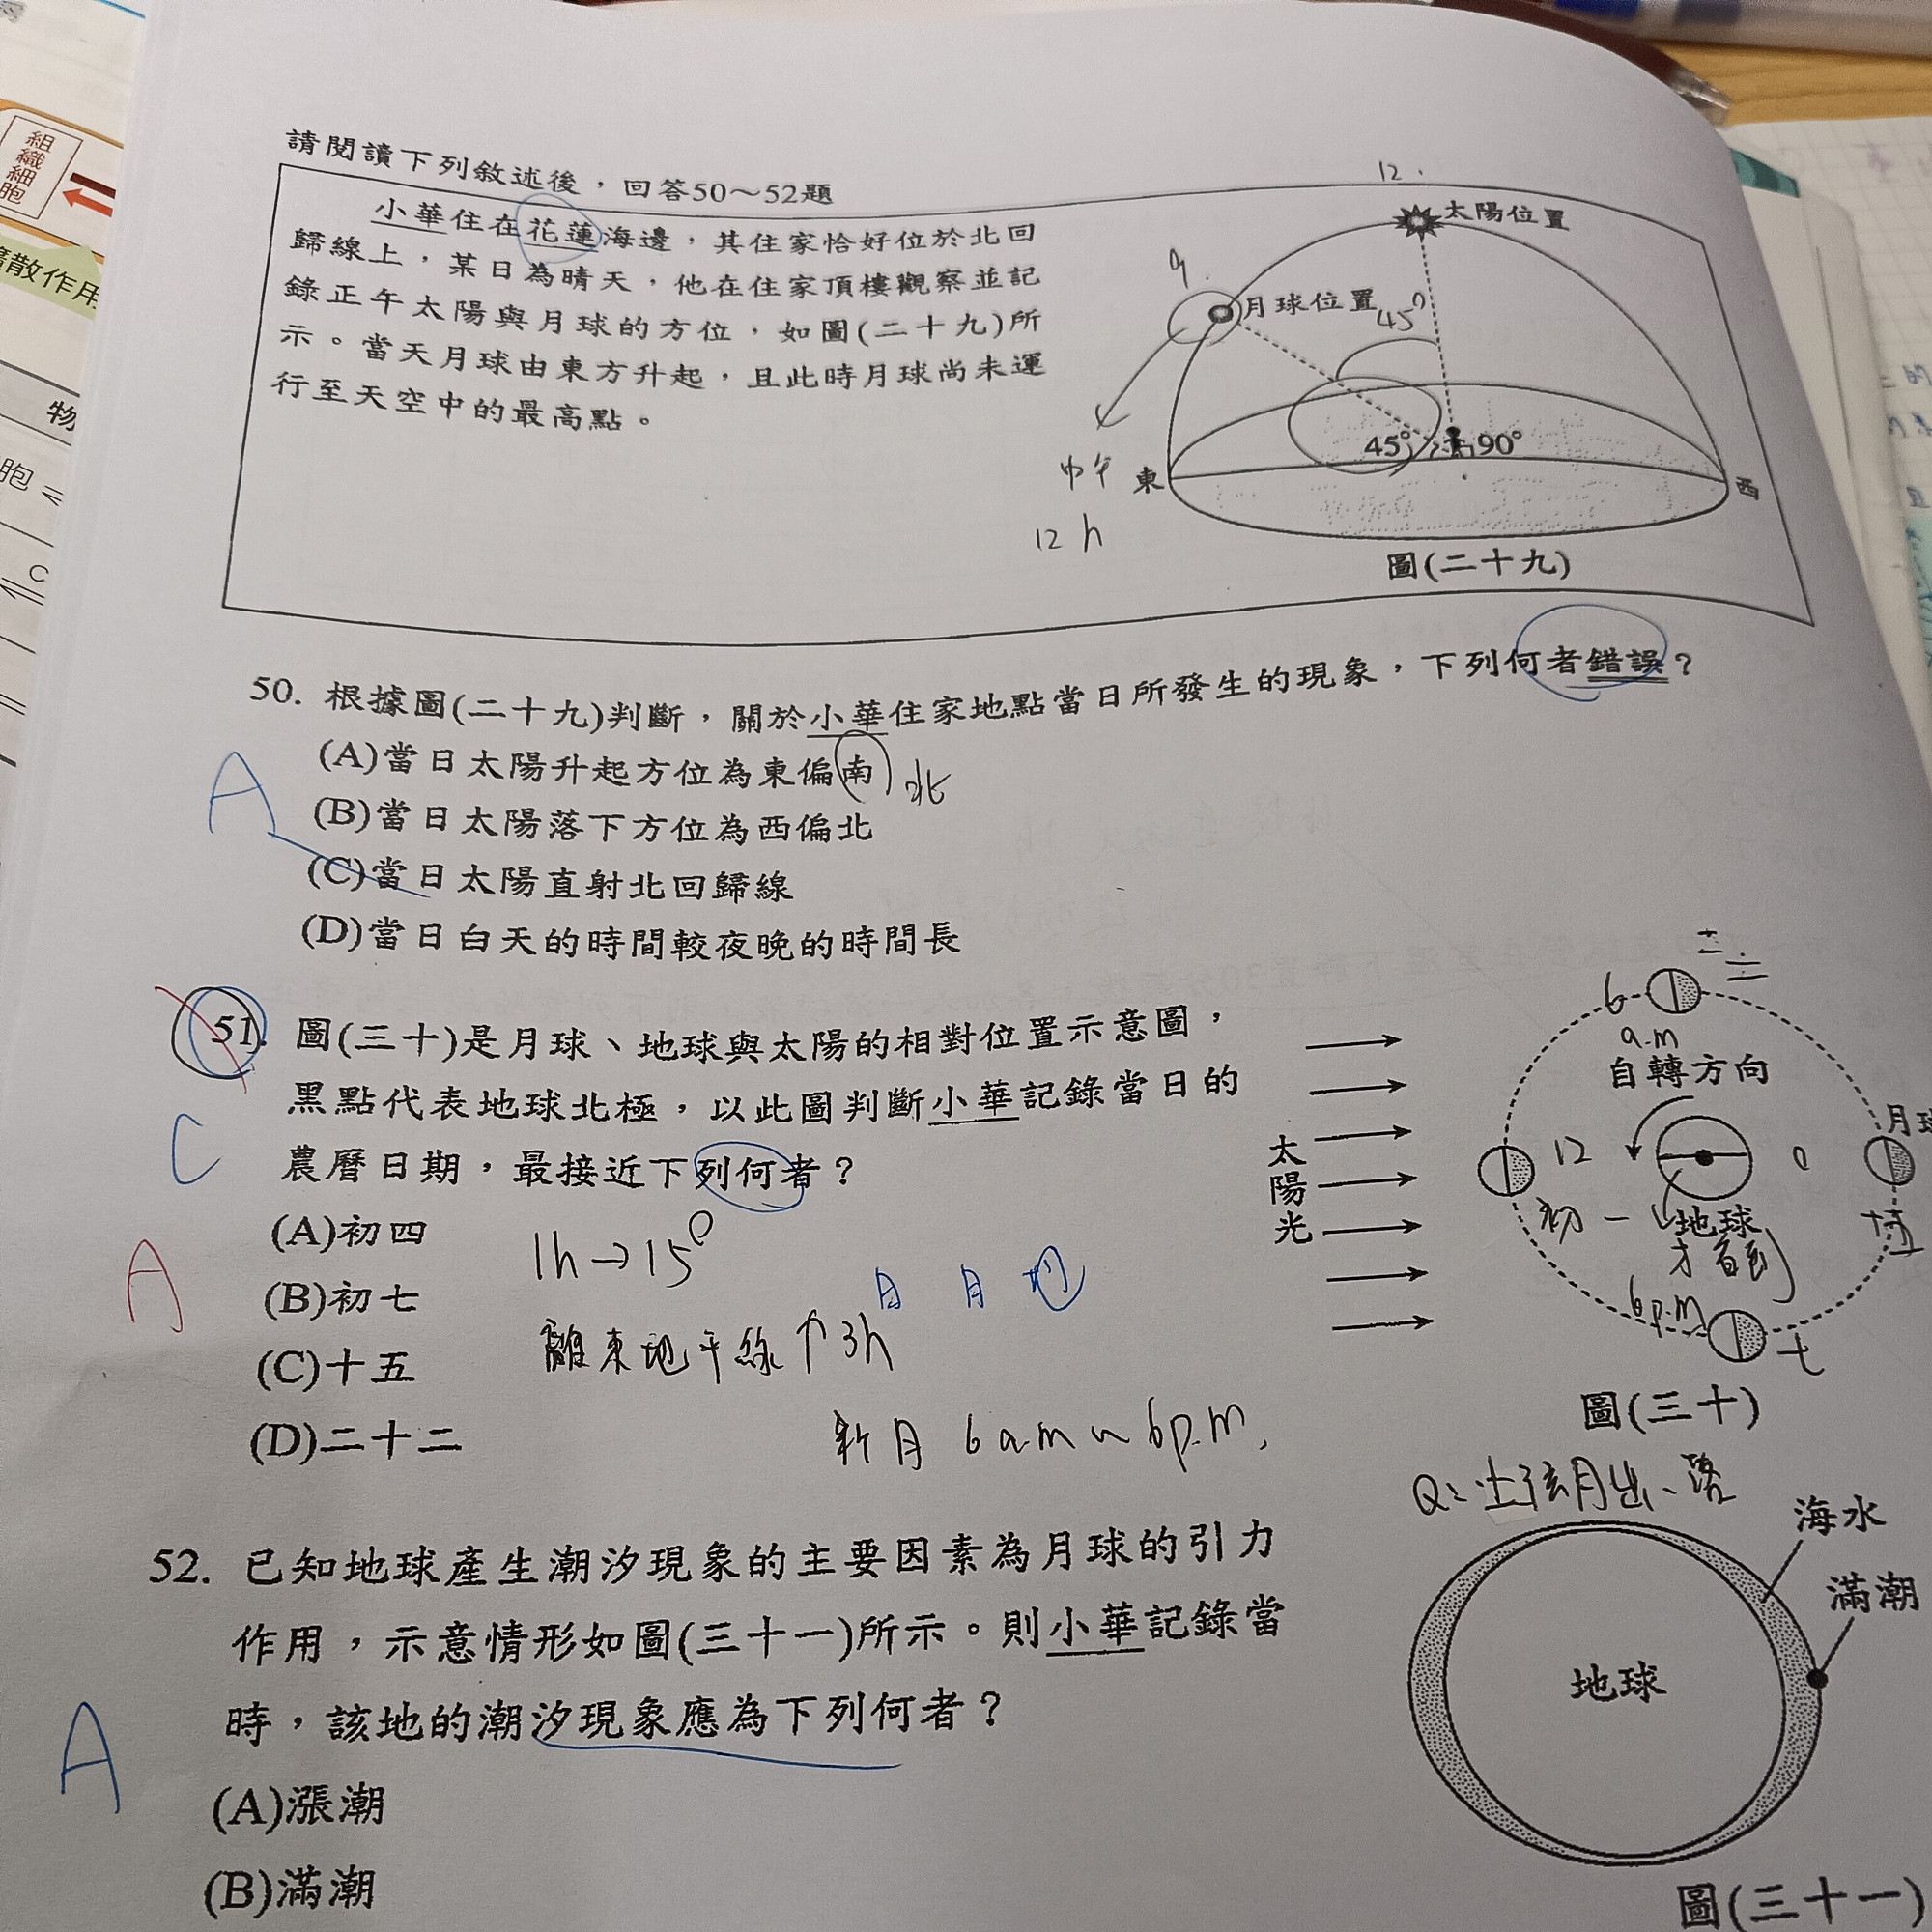 組織細胞
擴散作用
物
胞
C
請閱讀下列敘述後，回答50～52題
小華住在花蓮海邊，其住家恰好位於北回
歸線上，某日為晴天，他在住家頂樓觀察並記
錄正午太陽與月球的方位，如圖(二十九)所
示。當天月球由東方升起，且此時月球尚未運
行至天空中的最高點。
12.
太陽位置
9.
月球位置
45°
45°
90°
中午
東
西
12 h
圖(二十九)
50. 根據圖(二十九)判斷，關於小華住家地點當日所發生的現象，下列何者錯誤？
(A)當日太陽升起方位為東偏南
北
A
(B)當日太陽落下方位為西偏北
(C)當日太陽直射北回歸線
(D)當日白天的時間較夜晚的時間長
51. 圖(三十)是月球、地球與太陽的相對位置示意圖，
黑點代表地球北極，以此圖判斷小華記錄當日的
C
農曆日期，最接近下列何者？
(A)初四
A
(B)初七
(C)十五
(D)二十二
1h→15°
離東地平線↑3h
日 月 地
新月 6 a.m ~ 6 p.m.
二二
6
a.m
自轉方向
月球
太陽光
12
0
初一
地球
才看到
十五
6p.m
七
圖(三十)
Q: 上弦月出、落
52. 已知地球產生潮汐現象的主要因素為月球的引力
作用，示意情形如圖(三十一)所示。則小華記錄當
時，該地的潮汐現象應為下列何者？
A
(A)漲潮
(B)滿潮
海水
滿潮
地球
圖(三十一)